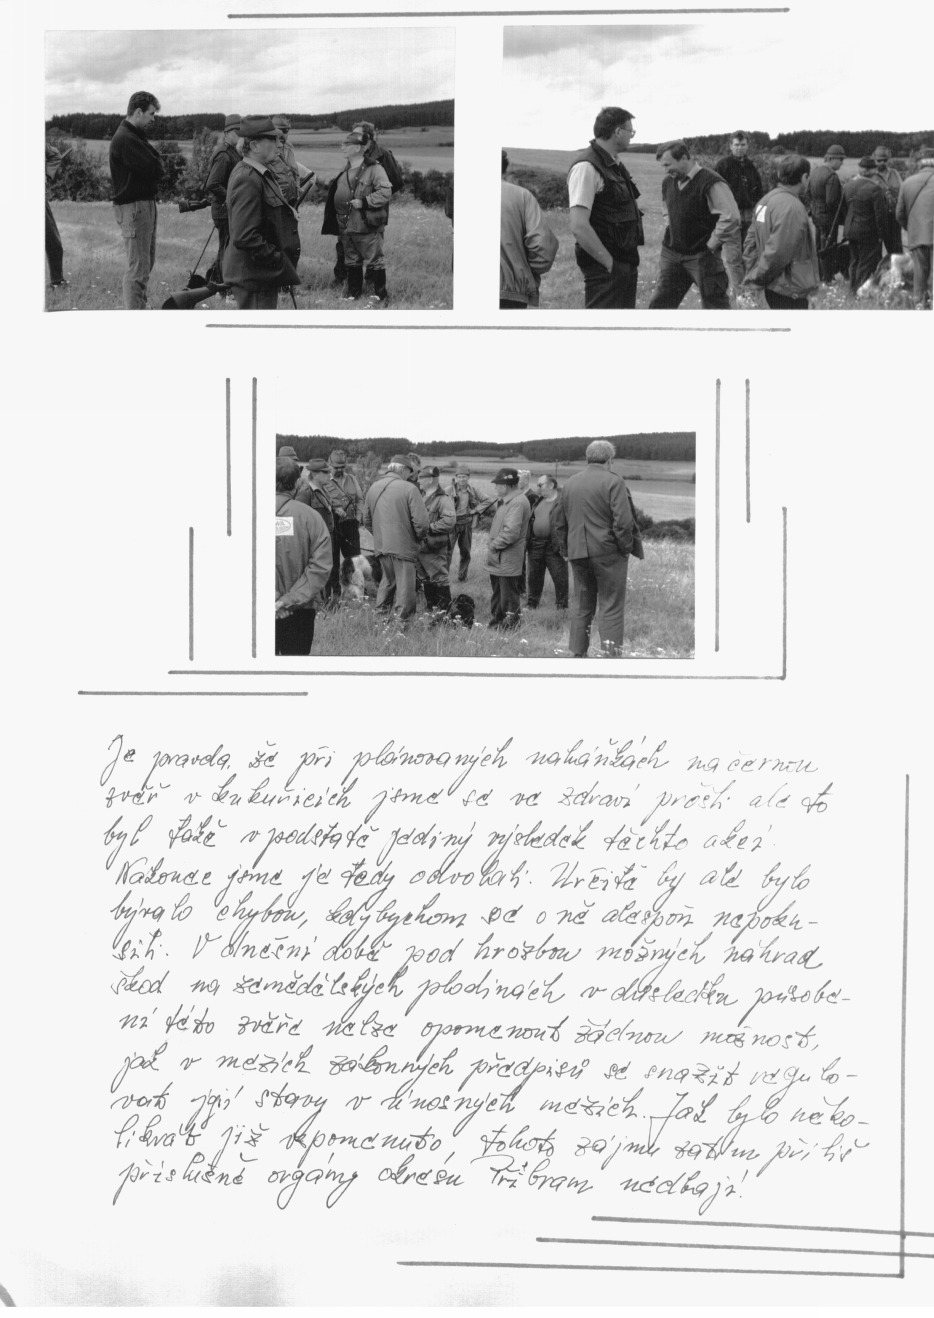 Je pravda, že při plánovaných naháňkách na černou
zvěř v kukuřicích jsme se ve zdraví prošli ale to
byl také v podstatě jediný výsledek těchto akcí.
Nakonec jsme je tedy odvolali. Určitě by ale bylo
bývalo chybou, kdybychom se o ně alespoň nepoku-
sili. V dnešní době pod hrozbou možných náhrad
škod na zemědělských plodinách v důsledku působe-
ní této zvěře nelze opomenout žádnou možnost,
jak v mezích zákonných předpisů se snažit regulo-
vat její stavy v únosných mezích. Jak bylo něko-
likrát již vzpomenuto, tohoto zájmu zatím příliš
příslušné orgány okresu Příbram nedbají.